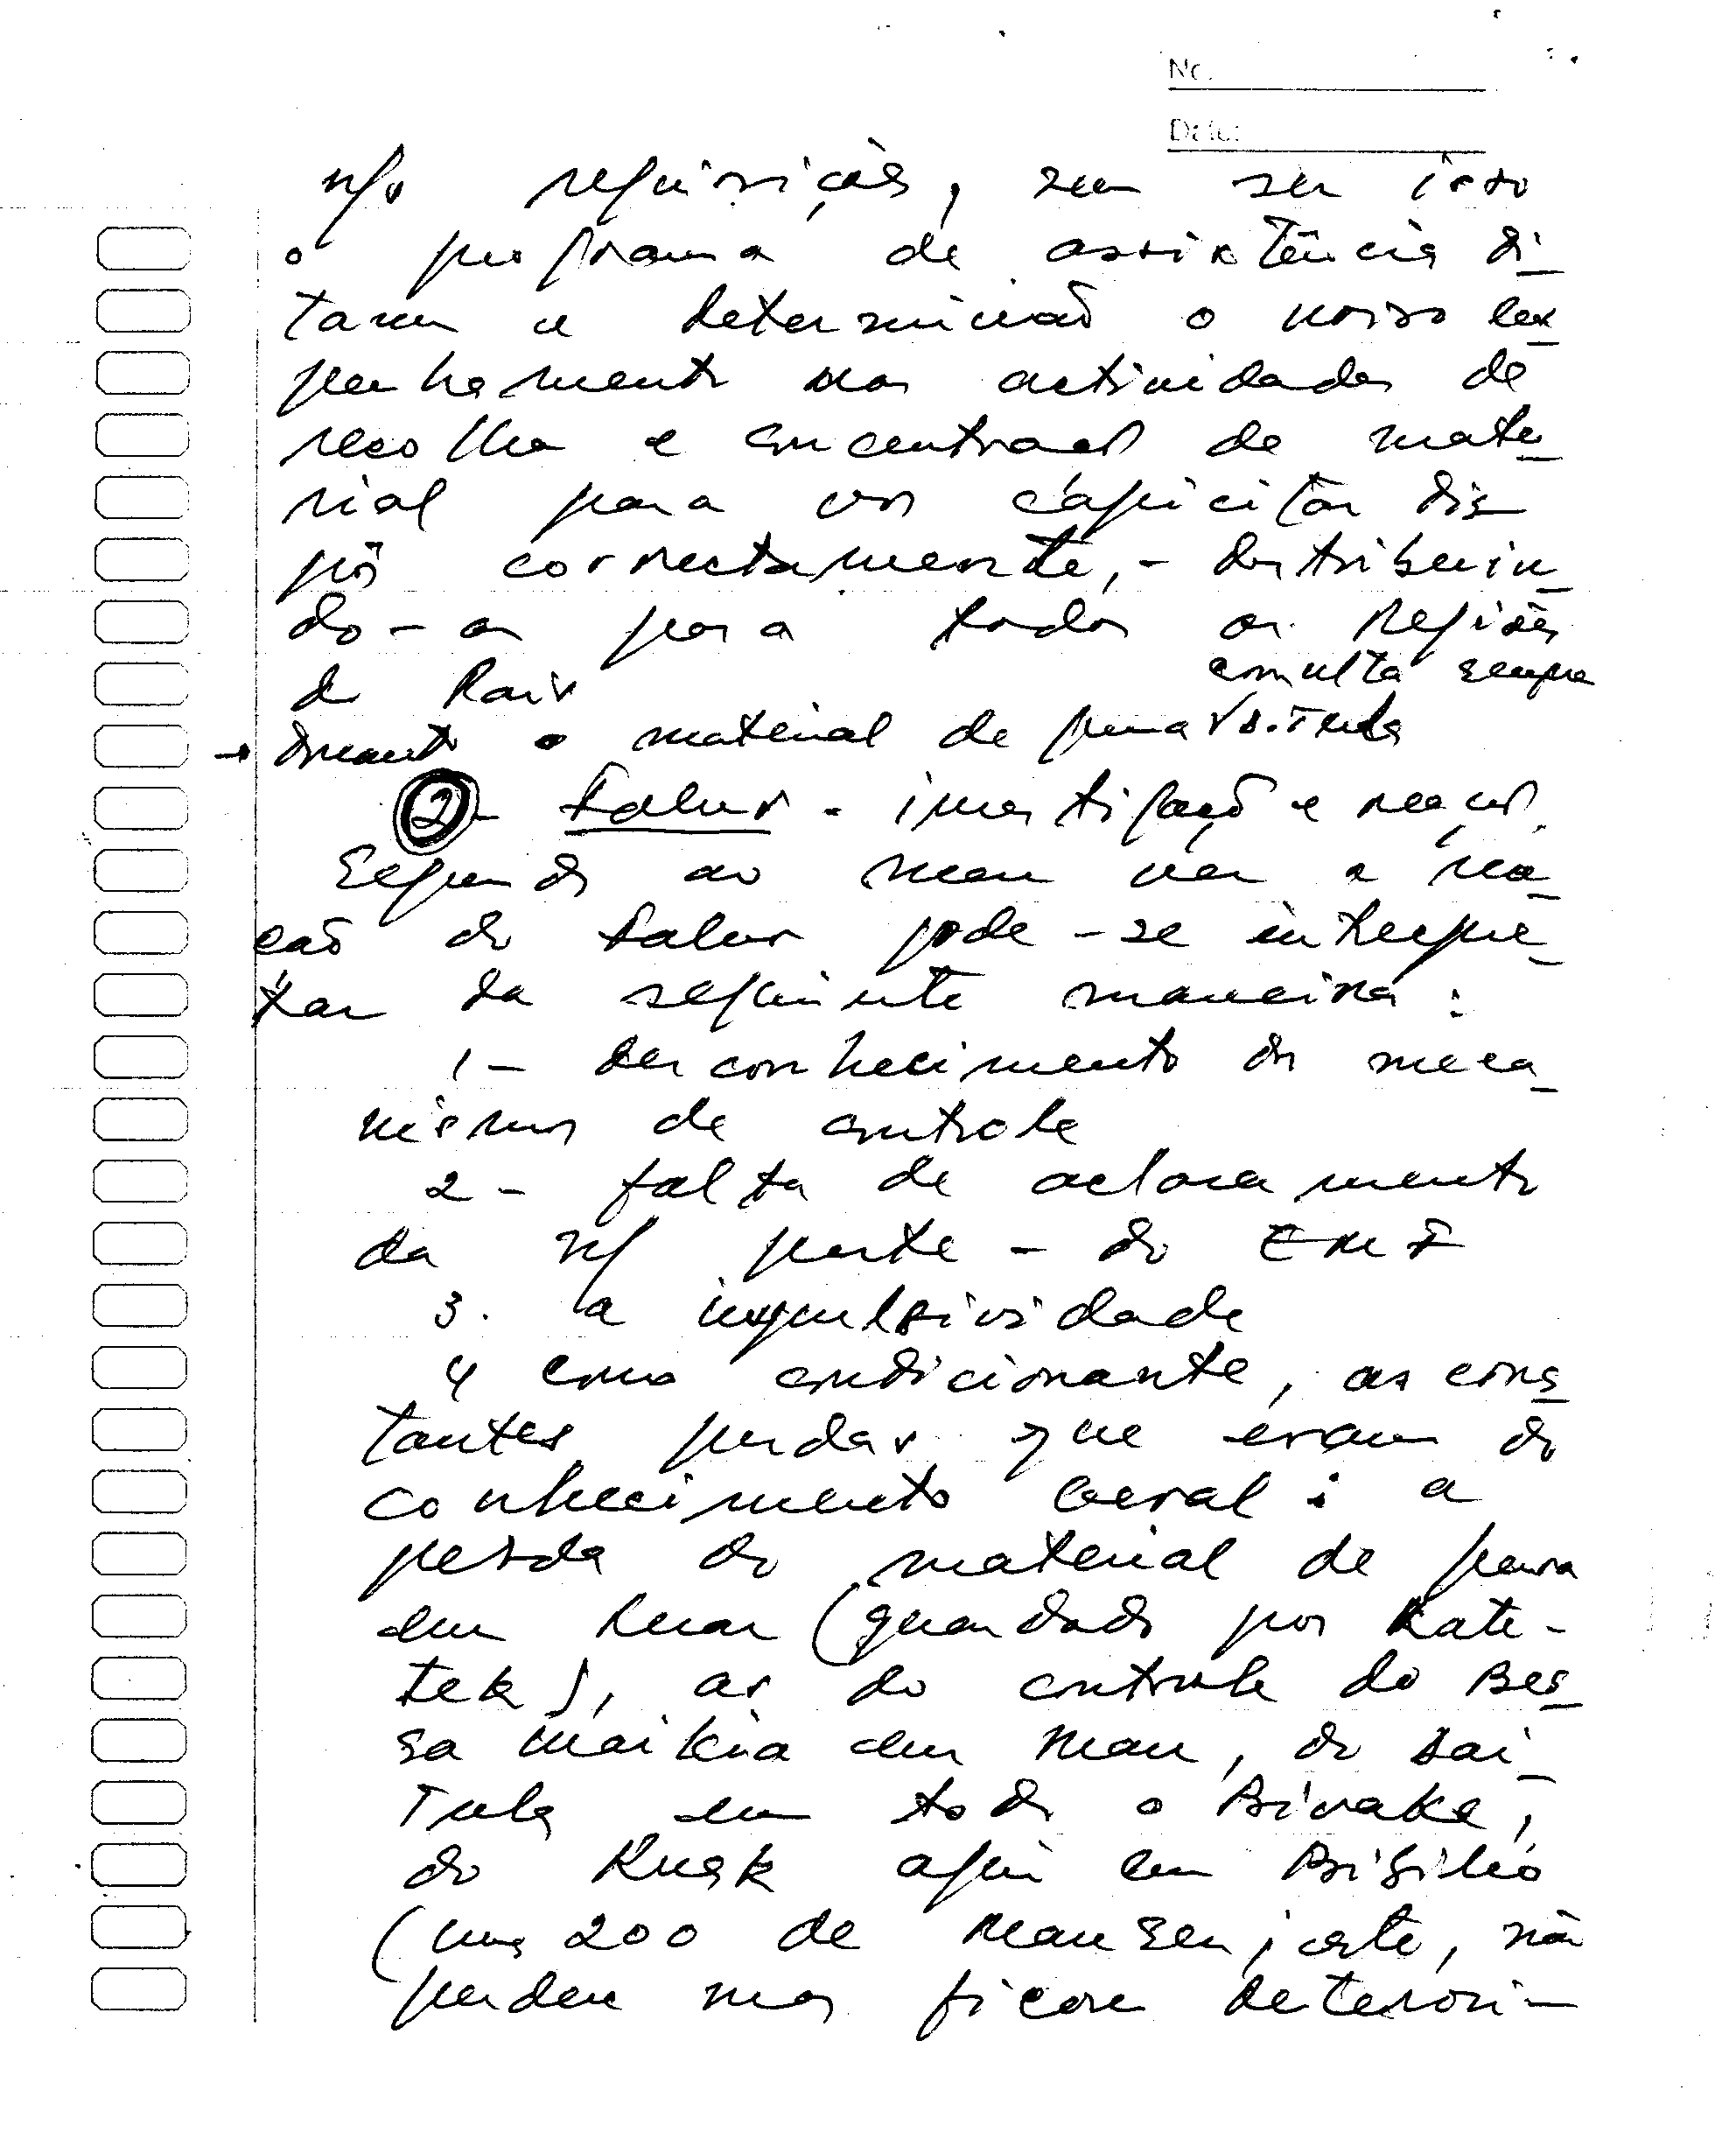 No.
Date:
n/s requisições, sem ser isso
o programa de assistência di-
tam e determinaõ o nosso
penhamento nas actividades de
recolha e concentraçaõ de mate-
rial para os dis-
pôr correctamente, - distribuin-
do-as para todas as Regiões
do País
consulta sempre
→ Quanto o material de
2 - Falur - investigação e reação
Segundo ao meu ver a rea-
ção do Falur pode-se interpre-
tar da seguinte maneira:
1 - desconhecimento do meca-
nismo de controle
2 - falta de aclaramento
da n/ parte - do EMF
3. a impulsividade
4 como condicionante, as cons-
tantes perdas que eram do
conhecimento geral: a
perda do material de
em (guardado por Kate-
tek), as do controle do Bes-
sa em , do Sai-
Tula em todo o Bivake,
do aqui em
(uns 200 de Mauser, este, não
perdeu mas ficou deteriori-